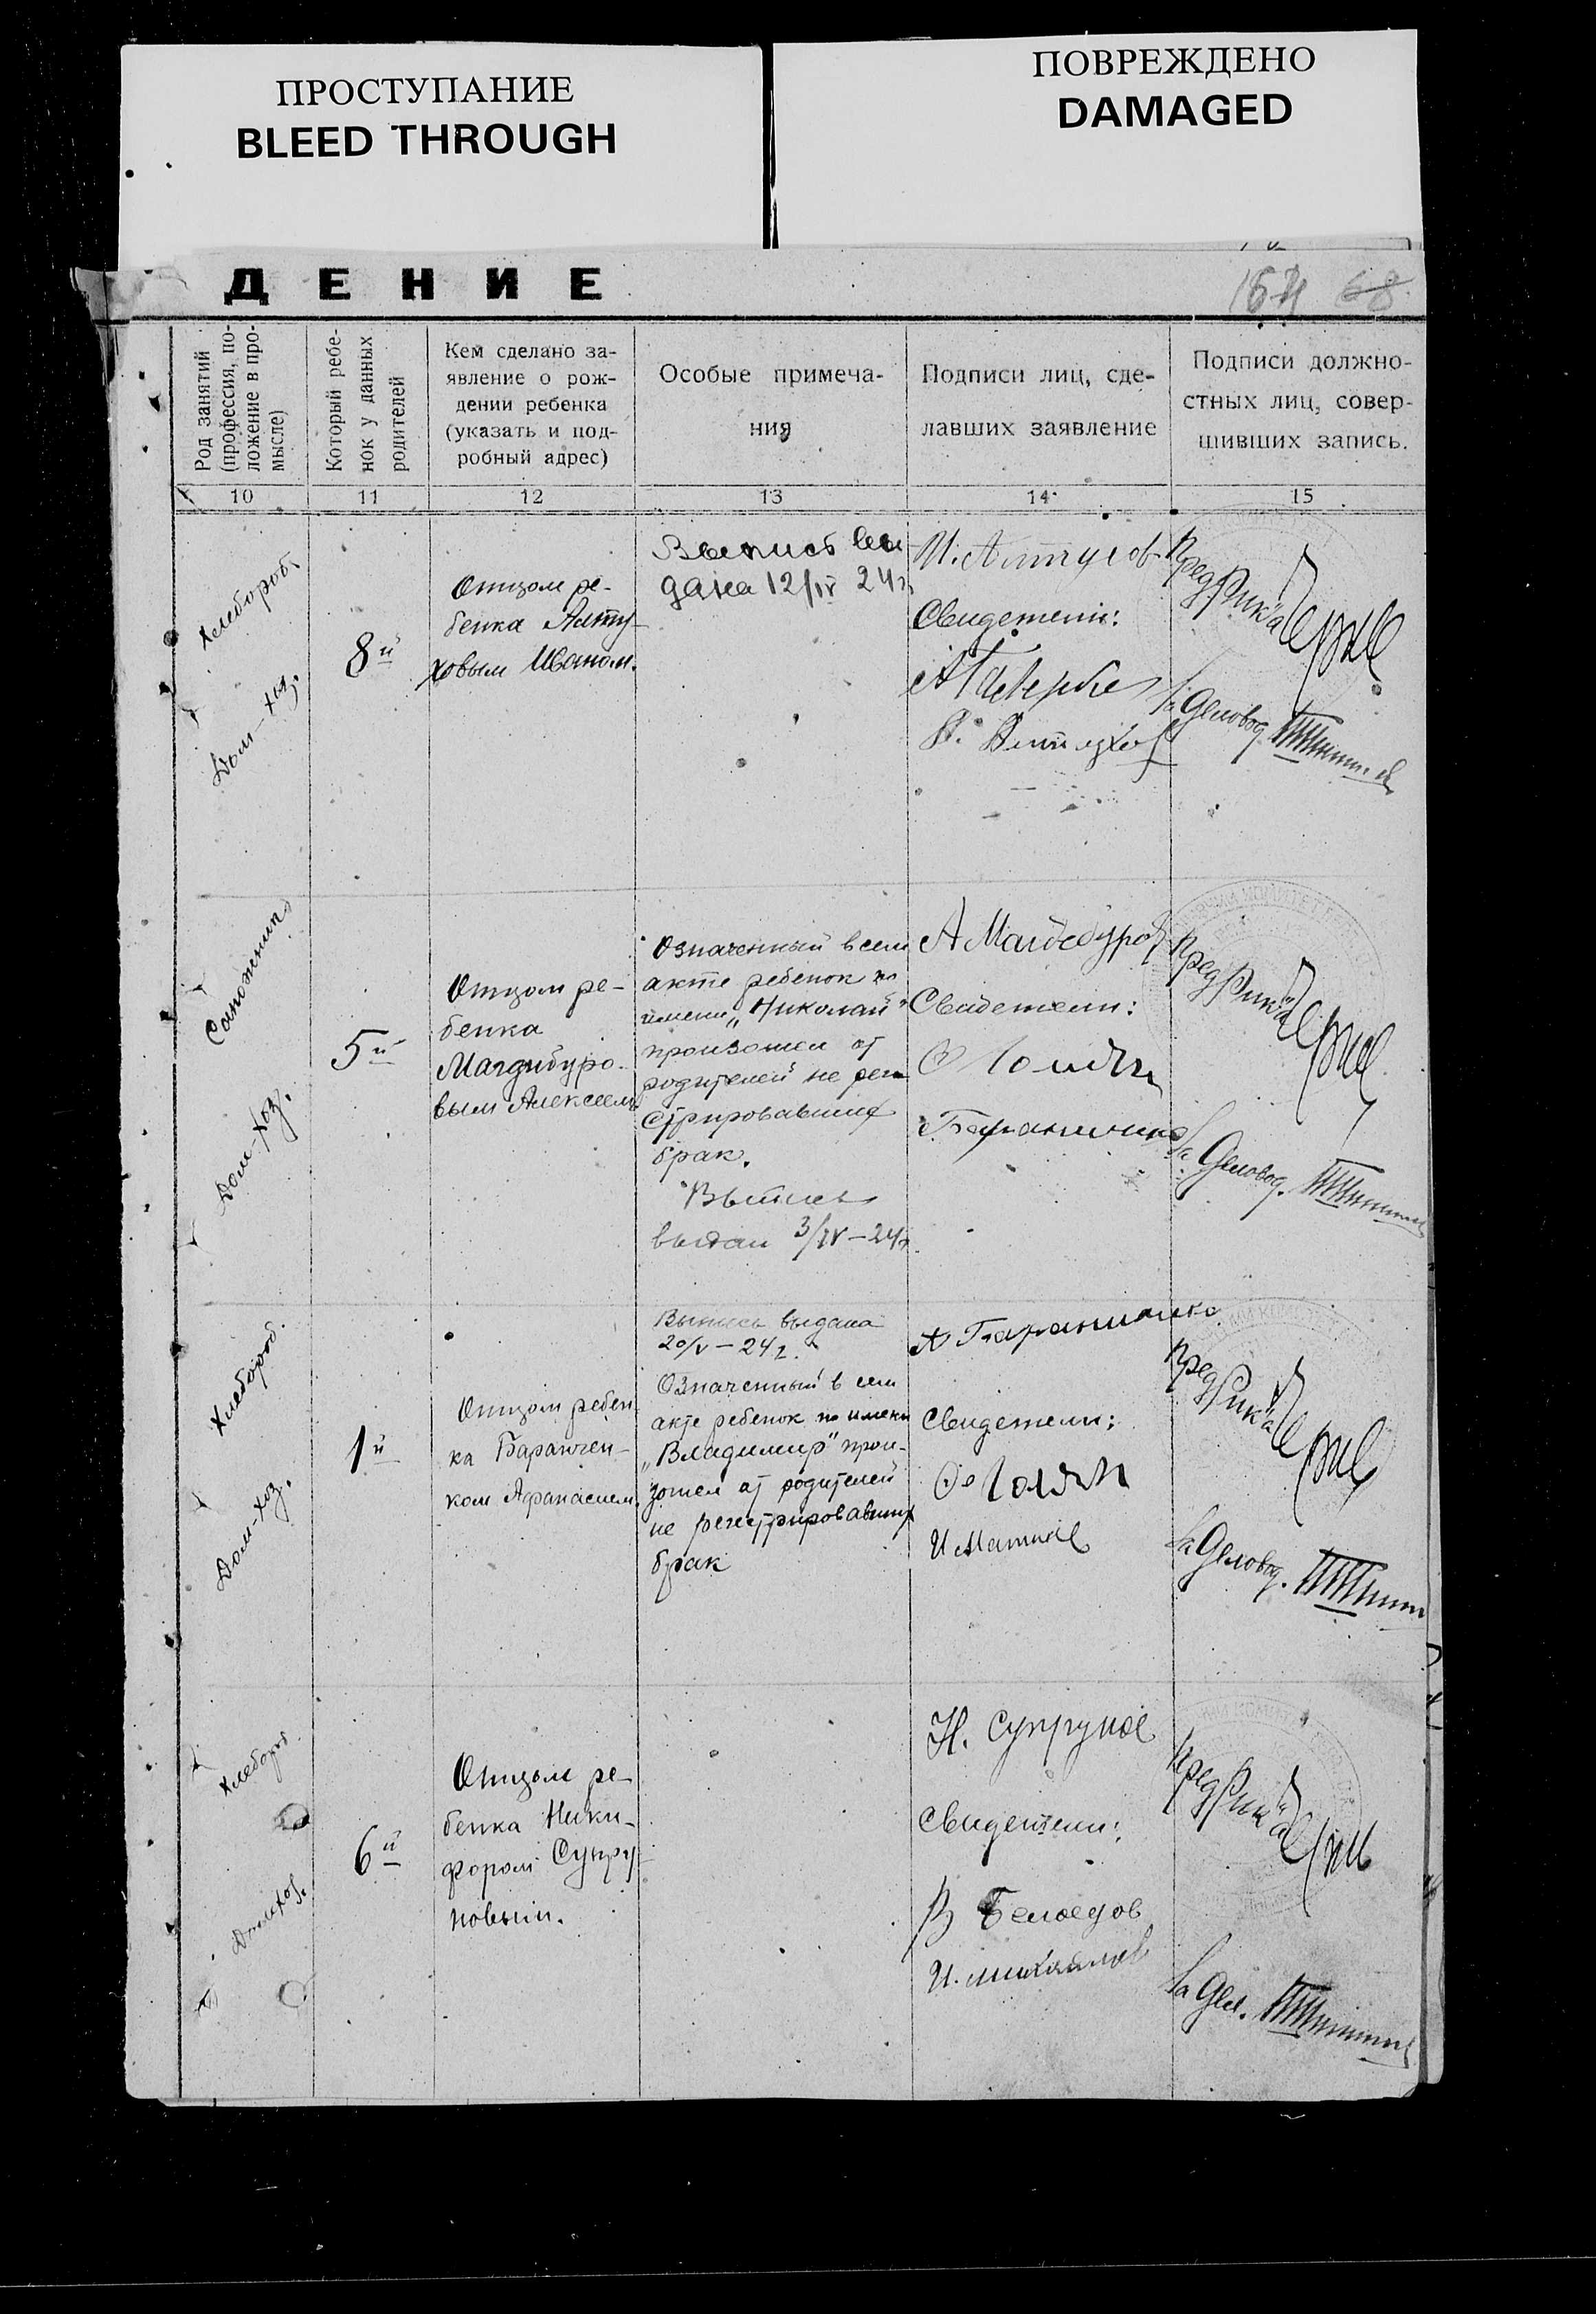 ПРОСТУПАНИЕ
BLEED THROUGH
ПОВРЕЖДЕНО
DAMAGED
ДЕНИЕ
68
Род занятий
(профессия, по-
ложение в про-
мысле)
Который ребе-
нок у данных
родителей
Кем сделано за-
явление о рож-
дении ребенка
(указать и под-
робный адрес)
Особые примеча-
ния
Подписи лиц, сде-
лавших заявление
Подписи должно-
стных лиц, совер-
шивших запись.
10
11
12
13
14
15
Хлебороб.
Дом-хоз.
8й
Отцом ре-
бенка Алту-
ховым Иваном.
Выпись вы
дана 12/IV 24г.
И. Алтухов
Свидетели:
Пред Рик'а
Деловод.
Сапожник
Дом-хоз.
5й
Отцом ре-
бенка
Магдибуро-
вым Алексеем
Означенный в сем
акте ребенок по
имени „Николай"
произошел от
родителей не реги
стрировавших
брак.
Выпись
выдан 3/IV-24г.
А Магдебуров
Свидетели:
Пред Рик'а
Деловод.
Хлебороб.
Дом-хоз.
1й
Отцом ребен
ка Баранчен-
ком Афанасием.
Выпись выдана
20/V-24г.
Означенный в сем
акте ребенок по имени
„Владимир" прои-
зошел от родителей
не регестрировавших
брак
Свидетели:
Пред Рик'а
Деловод.
Хлебороб
Домхоз.
6й
Отцом ре-
бенка Ники-
фором Супру-
новым.
Н. Супрунов
Свидетели:
В Белоедов
И. Михайлов
Пред Рик'а
Дел.